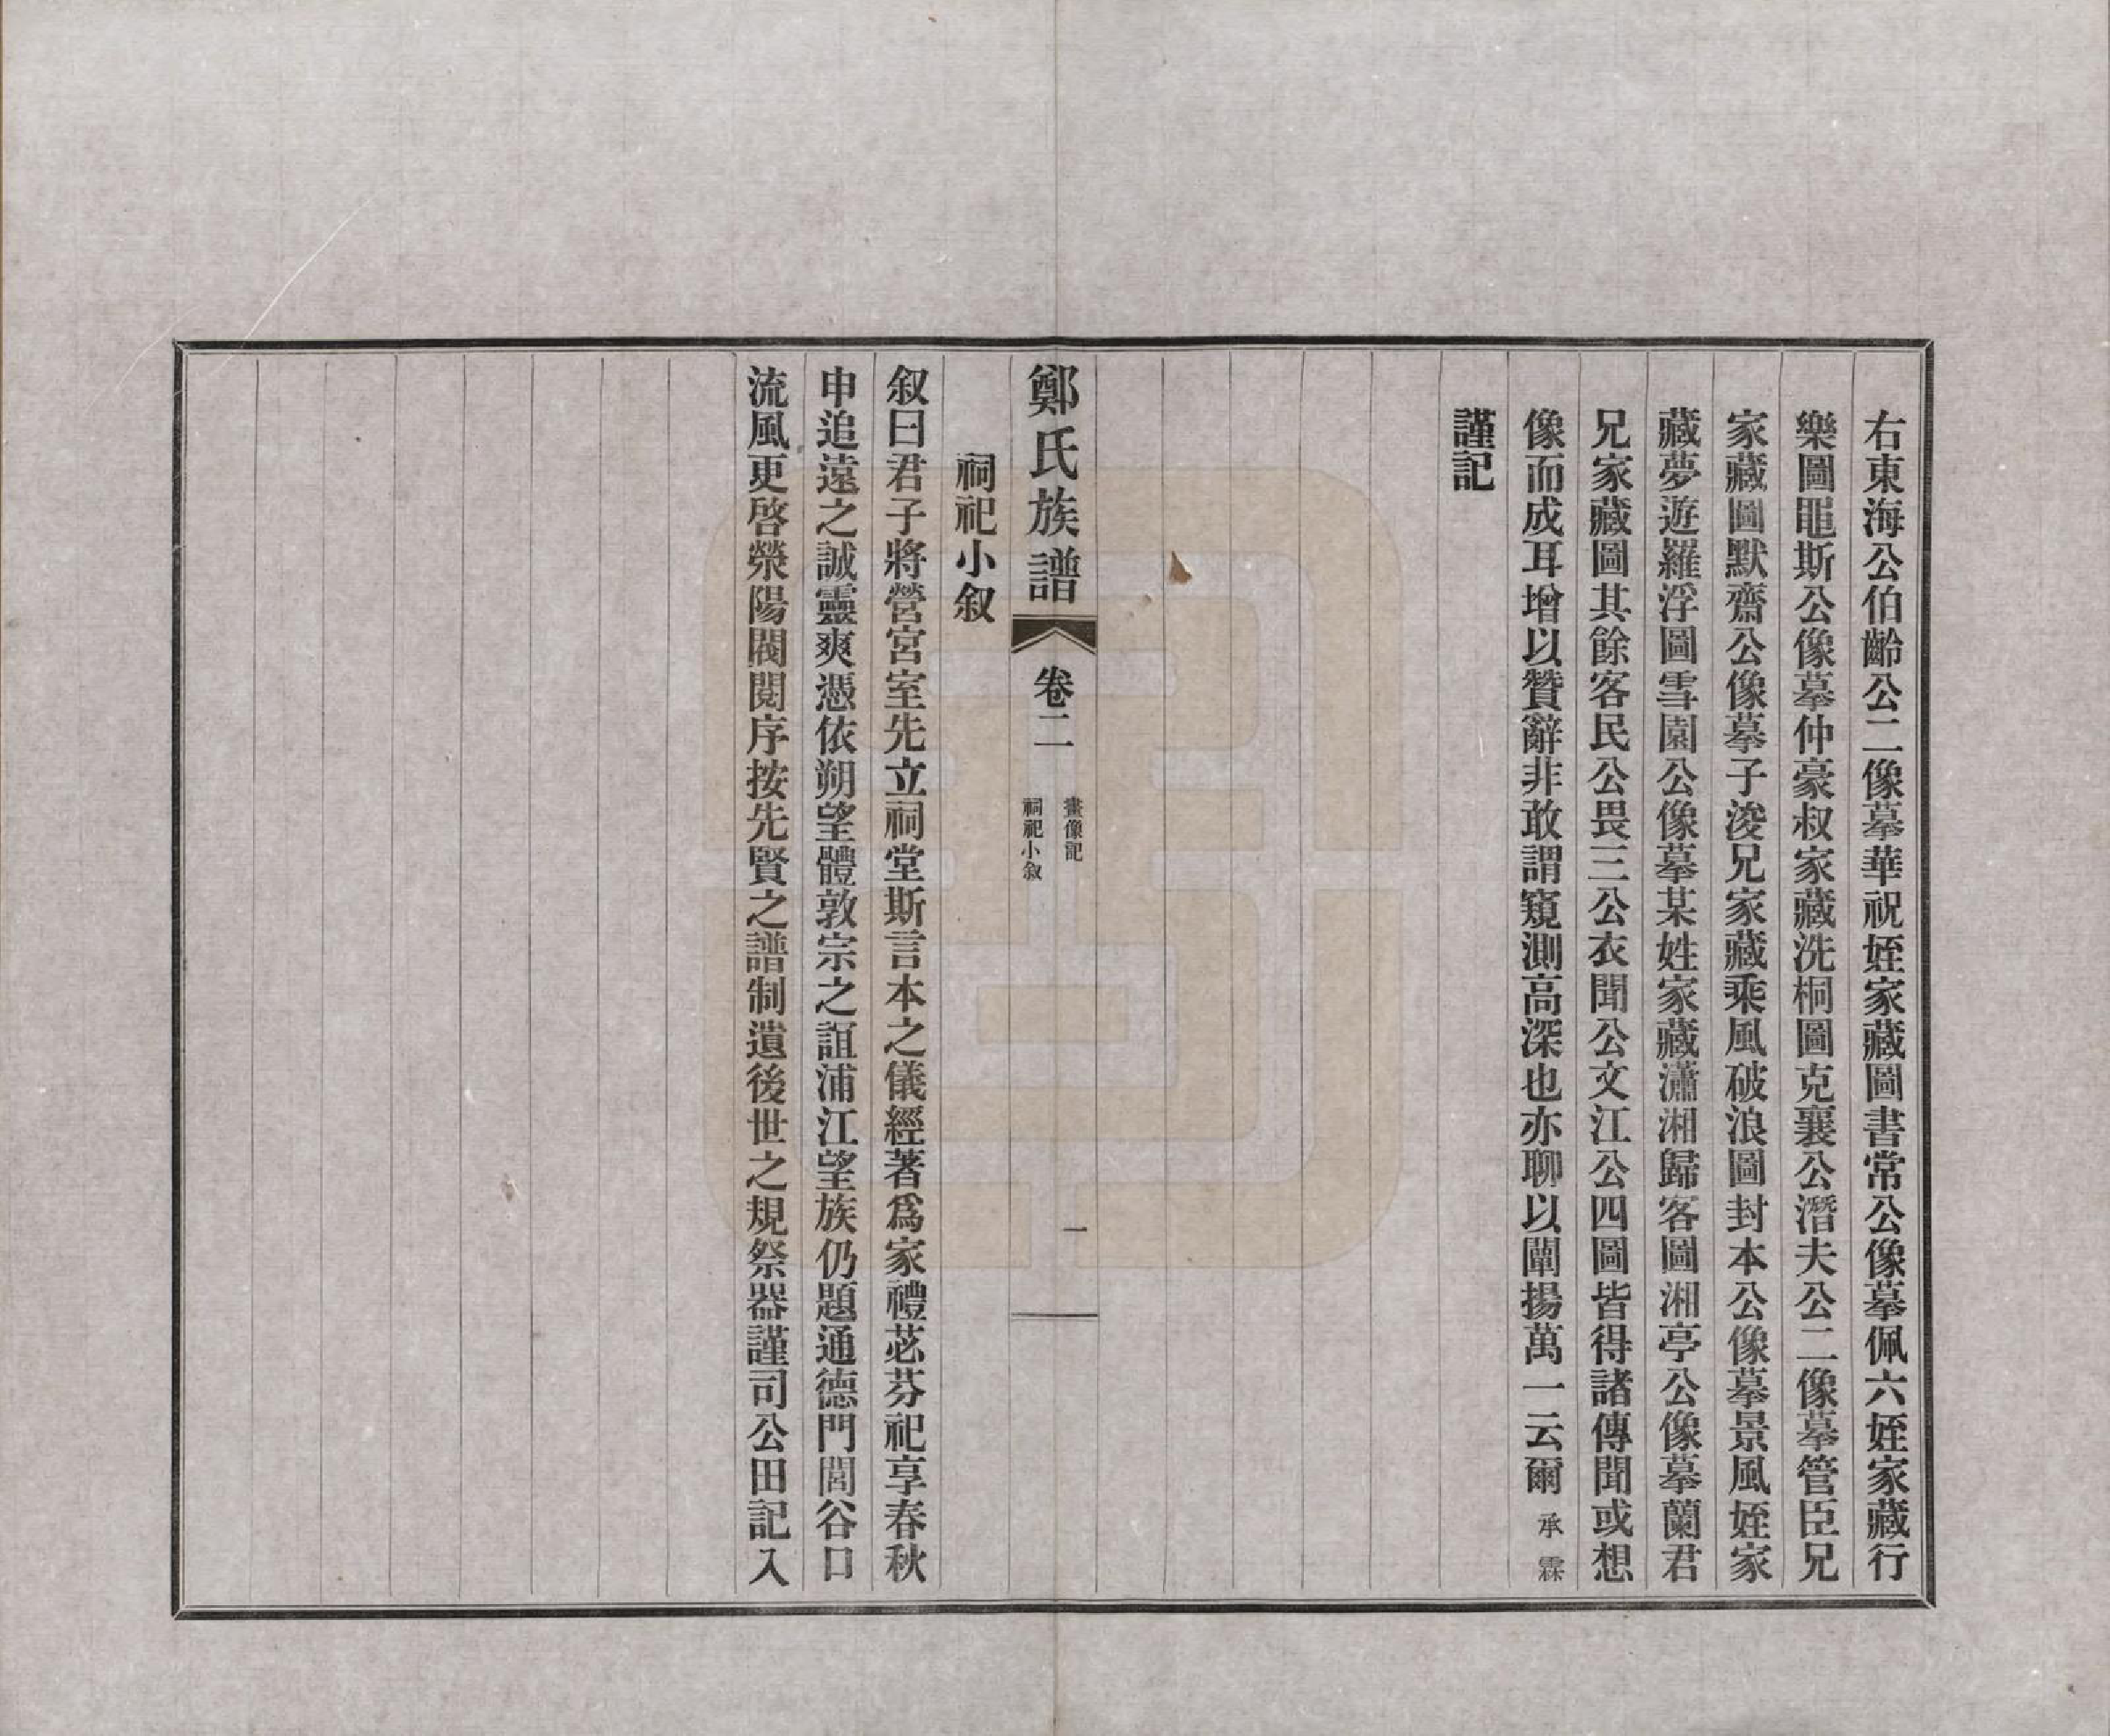 右東海公伯齡公二像摹華祝姪家藏圖書常公像摹佩六姪家藏行
樂圖黽斯公像摹仲豪叔家藏洗桐圖克襄公潛夫公二像摹管臣兄
家藏圖默齋公像摹子浚兄家藏乘風破浪圖封本公像摹景風姪家
藏夢遊羅浮圖雪園公像摹某姓家藏瀟湘歸客圖湘亭公像摹蘭君
兄家藏圖其餘客民公畏三公衣聞公文江公四圖皆得諸傳聞或想
像而成耳增以贊辭非敢謂窺測高深也亦聊以闡揚萬一云爾 承霖
謹記
鄭氏族譜 卷二
畫像記
祠祀小叙
一
祠祀小叙
叙曰君子將營宮室先立祠堂斯言本之儀經著爲家禮苾芬祀享春秋
申追遠之誠靈爽憑依朔望體敦宗之誼浦江望族仍題通德門閭谷口
流風更啓滎陽閥閱序按先賢之譜制遺後世之規祭器謹司公田記入